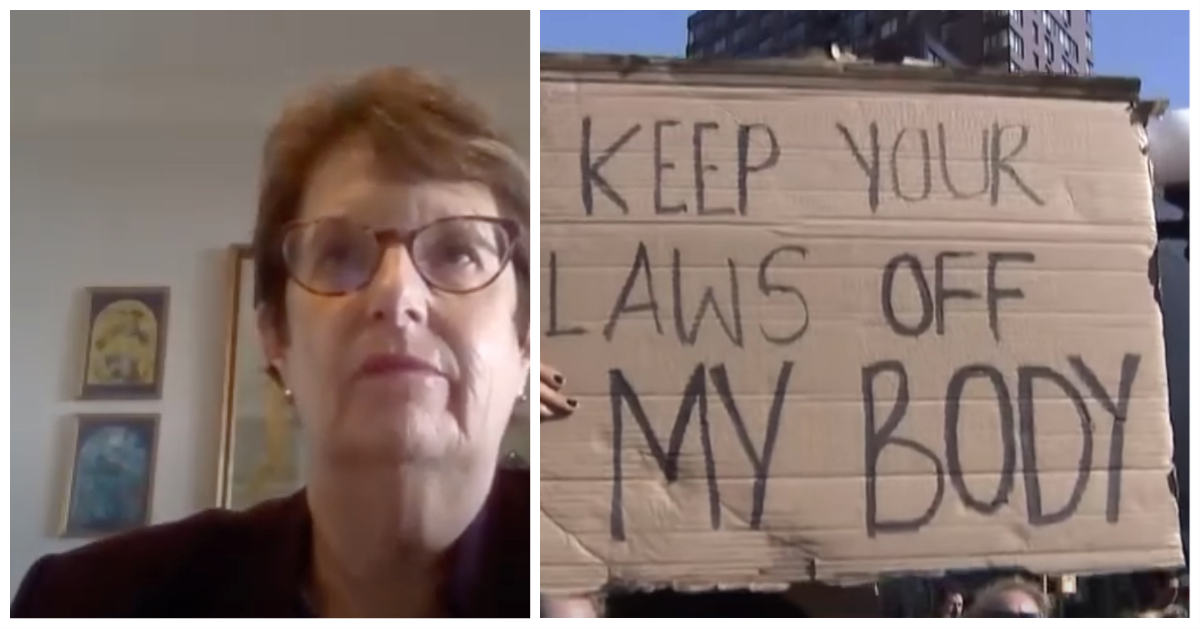 KEEP YOUR
LAWS OFF
MY BODY